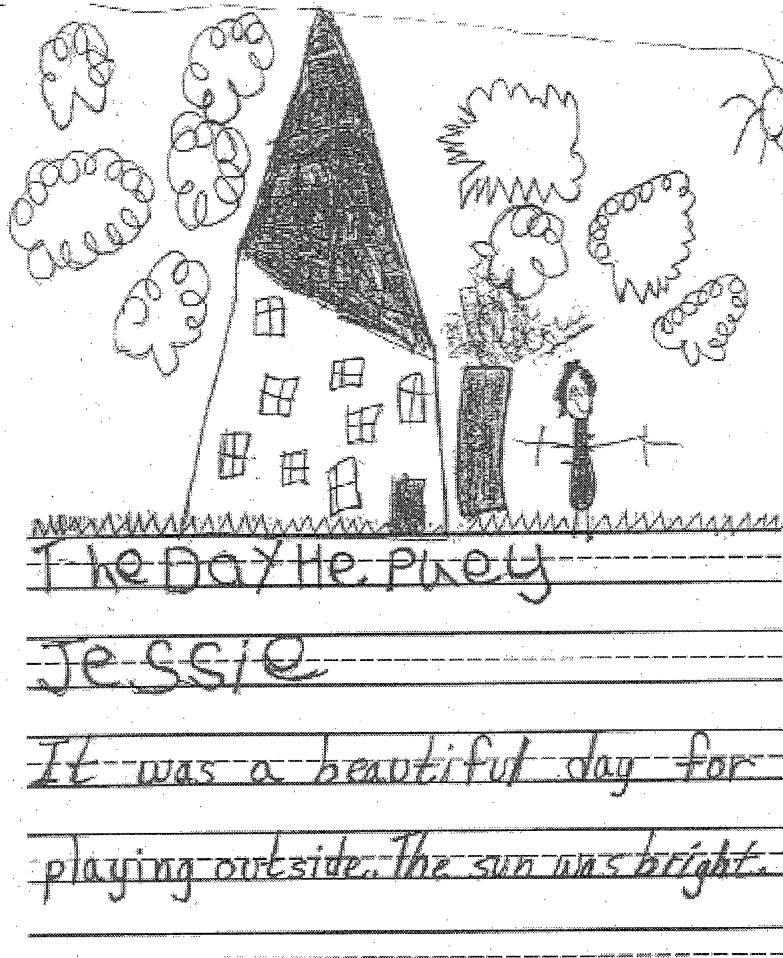 The Day He Pluey
Jessie
It was a beautiful day for
playing outside. The sun was bright.